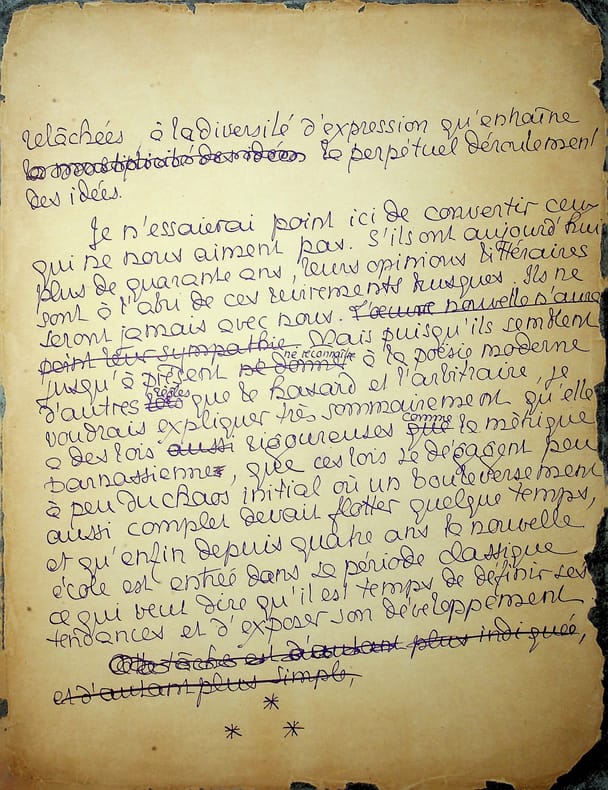 relâchées à la diversité d'expression qu'entraîne
la multiplicité des idées le perpétuel déroulement
des idées.
Je n'essaierai point ici de convertir ceux
qui ne nous aiment pas. S'ils ont aujourd'hui
plus de quarante ans, leurs opinions littéraires
sont à l'abri de ces revirements brusques. Ils ne
seront jamais avec nous. L'œuvre nouvelle n'aura
point leur sympathie. Mais puisqu'ils semblent
jusqu'à présent ne donner ne reconnaître à la poésie moderne
d'autres règles que le hasard et l'arbitraire, je
voudrais expliquer très sommairement qu'elle
a des lois aussi rigoureuses que comme la métrique
parnassienne, que ces lois se dégagent peu
à peu du chaos initial où un bouleversement
aussi complet devait flotter quelque temps,
et qu'enfin depuis quatre ans la nouvelle
école est entrée dans sa période classique
ce qui veut dire qu'il est temps de définir ses
tendances et d'exposer son développement
tâche est d'autant plus indiquée,
et d'autant plus simple,
*
* *